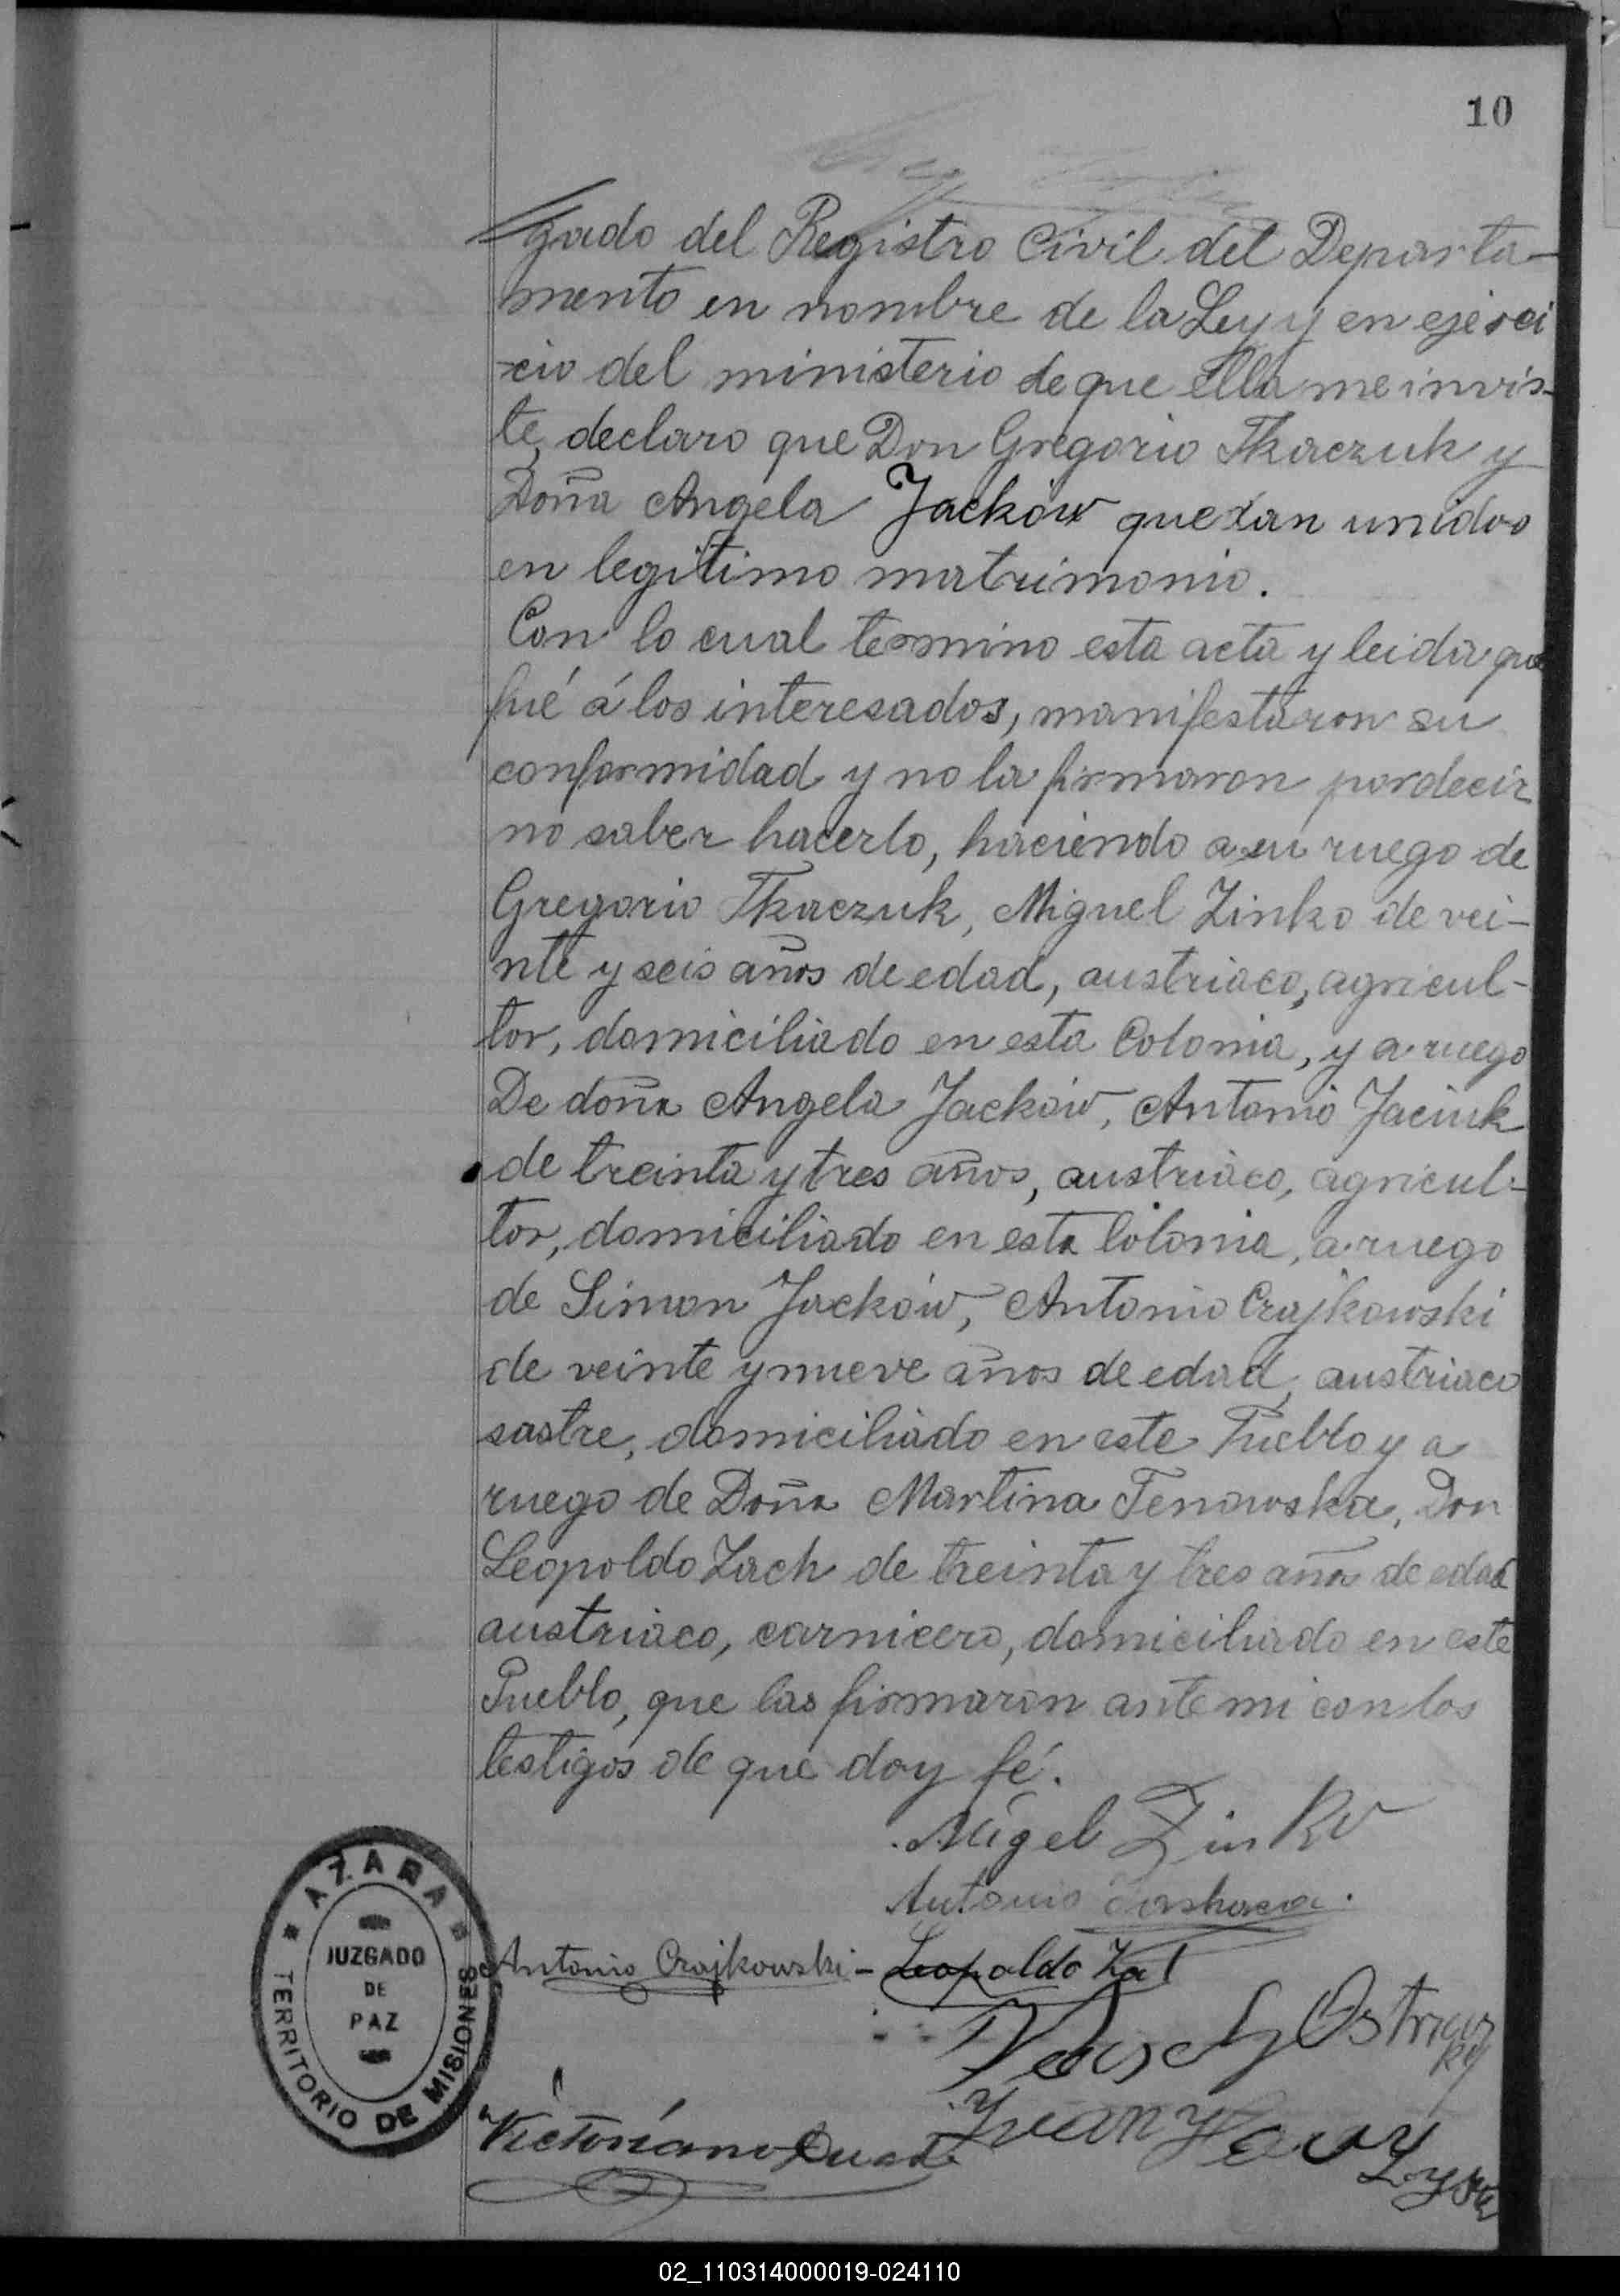 10
gado del Registro Civil del Departa-
mento en nombre de la Ley y en ejerci
-cio del ministerio de que ella me invis-
te, declaro que Don Gregorio Tkaczuk y
Doña Angela Jacków quedan unidos
en legitimo matrimonio.
Con lo cual termino esta acta y leida que
fué á los interesados, manifestaron su
conformidad y no la firmaron por decir
no saber hacerlo, haciendo a su ruego de
Gregorio Tkaczuk, Miguel Zinko de vei-
nte y seis años de edad, austriaco, agricul-
tor, domiciliado en esta Colonia, y a ruego
De doña Angela Jacków, Antonio Jaciuk
de treinta y tres años, austriaco, agricul-
tor, domiciliado en esta Colonia, a ruego
de Simon Jacków, Antonio Czajkowski
de veinte y nueve años de edad, austriaco
sastre, domiciliado en este Pueblo y a
ruego de Doña Martina Tenowska, Don
Leopoldo Zach de treinta y tres años de edad
austriaco, carnicero, domiciliado en este
Pueblo, que las firmaron ante mi con los
testigos de que doy fé.
Migel Zinko
Antonio
Antonio Czajkowski - Leopoldo
Juan
Victoriano
AZARA
JUZGADO
DE
PAZ
TERRITORIO DE MISIONES
02_110314000019-024110